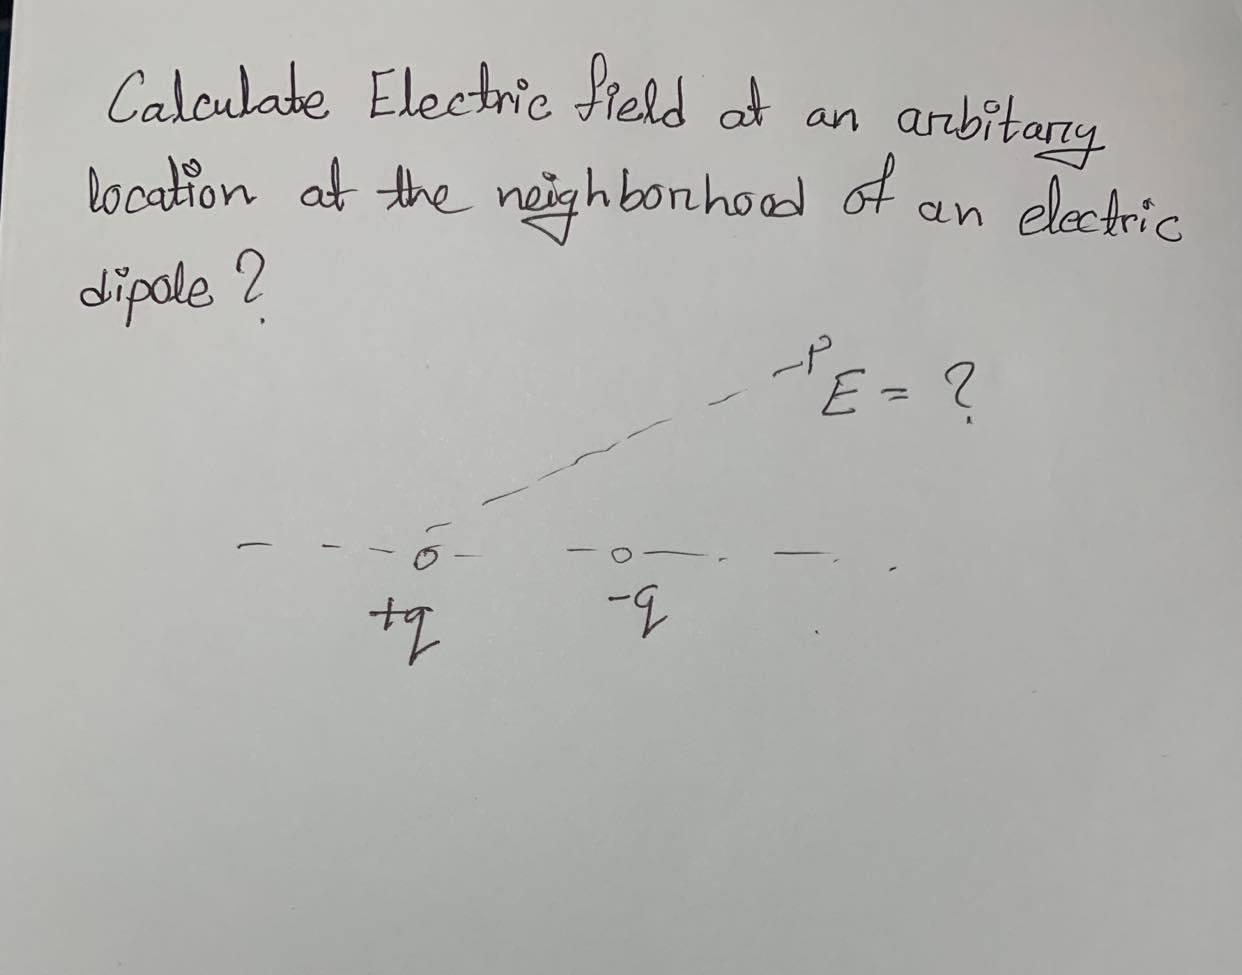 Calculate Electric field at an arbitary
location at the neighborhood of an electric
dipole?
P
E = ?
+q
-q